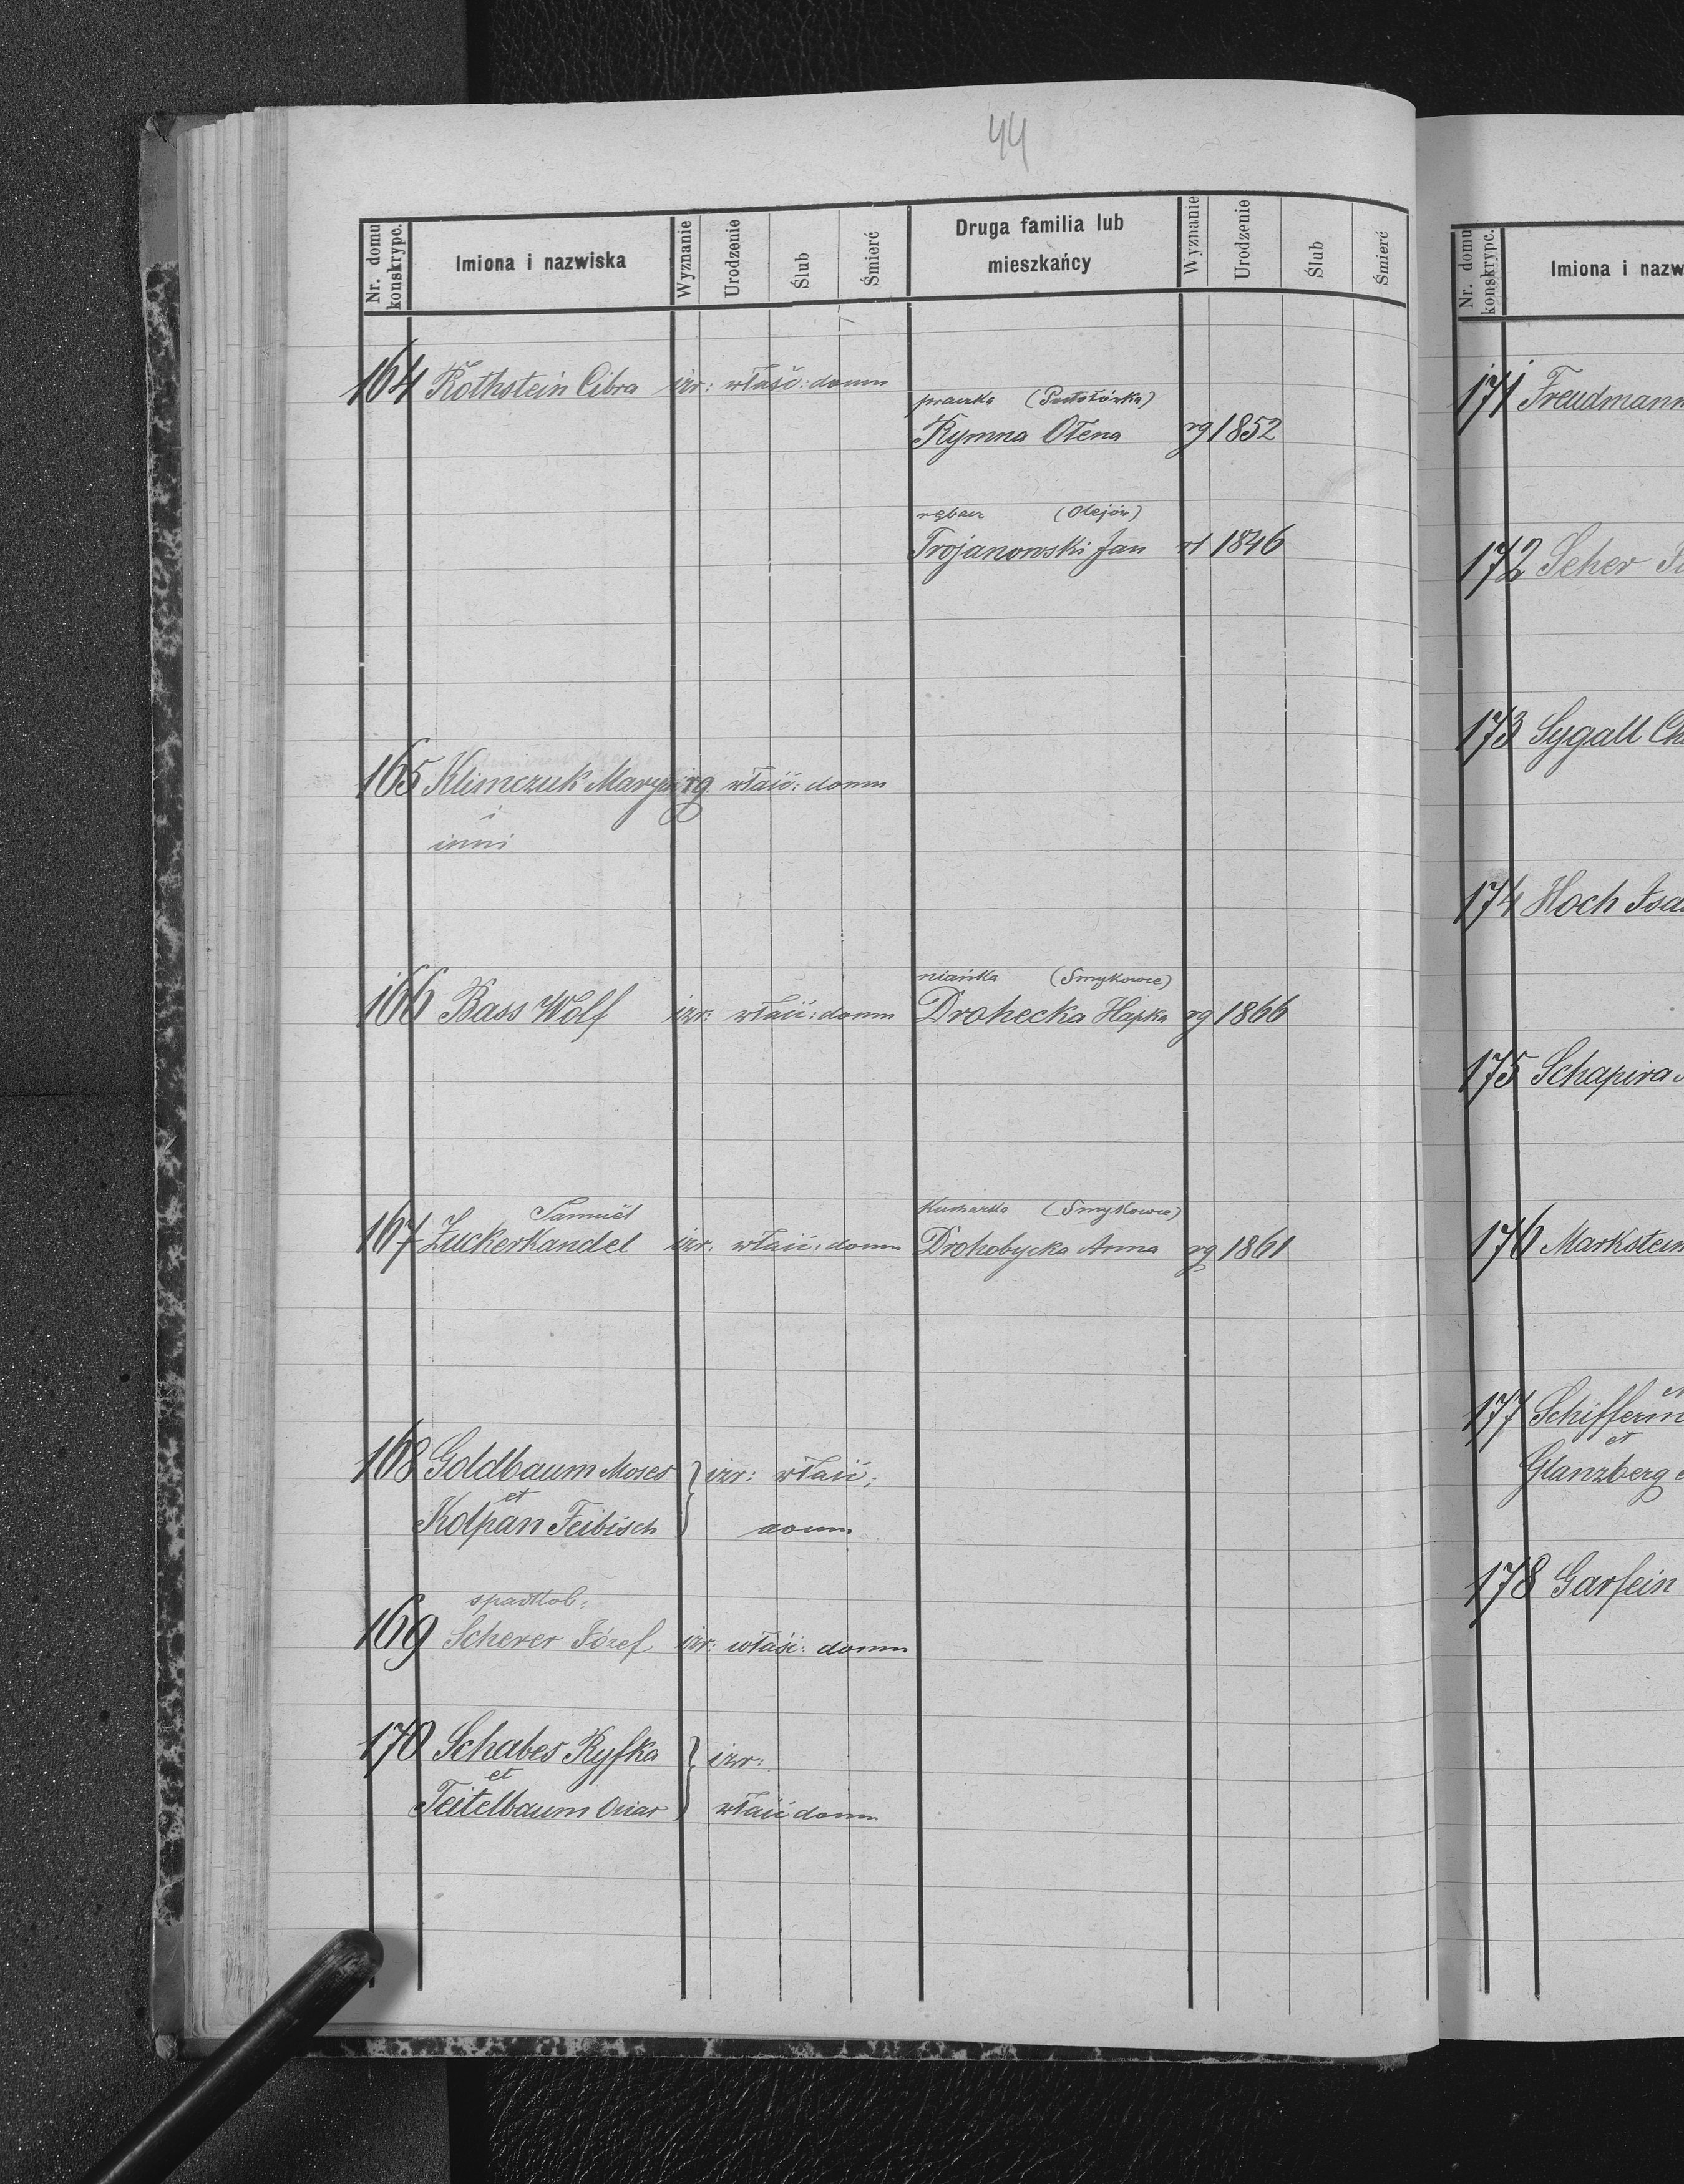 44
Nr. domu konskrypc. Imiona i nazwiska Wyznanie Urodzenie Ślub Śmierć Druga familia lub mieszkańcy Wyznanie Urodzenie Ślub Śmierć
164 Rothstein Cibra izr: właśc: domu
praczka
Rymna Ołena rg 1852
rębacz (Olejów)
Trojanowski Jan rł 1846
165 Klimczuk Marya rg właść: domu
i
inni
niańka (Smykowce)
166 Bass Wolf izr: właść: domu Drohecka Hapka rg 1866
Samuel Kucharka (Smykowce)
167 Zuckerkandel izr: właść: domu Drohobycka Anna rg 1861
168 Goldbaum Moses izr: właść:
et
Kolpan Feibisch domu
spadkob:
169 Scherer Józef izr: właść: domu
170 Schabes Ryfka izr:
et
Teitelbaum właść domu
Nr. domu konskrypc. Imiona i nazw
171 Freudmann
172 Seher
173 Sygall Ch
174 Hoch Isa
175 Schapira
176 Markstein
177 Schifferm
et
Glanzberg
178 Garfein